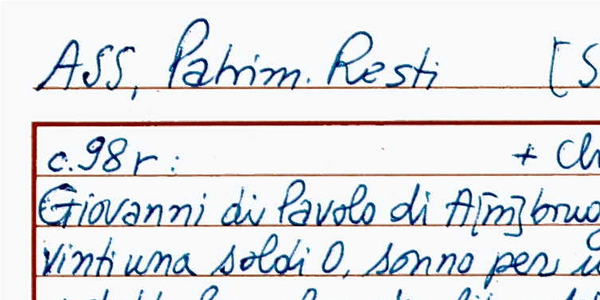 ASS, Patrim. Resti [S
c.98r: + Ch
Giovanni di Pavolo di A[m]brug
vinti una soldi 0, sonno per u